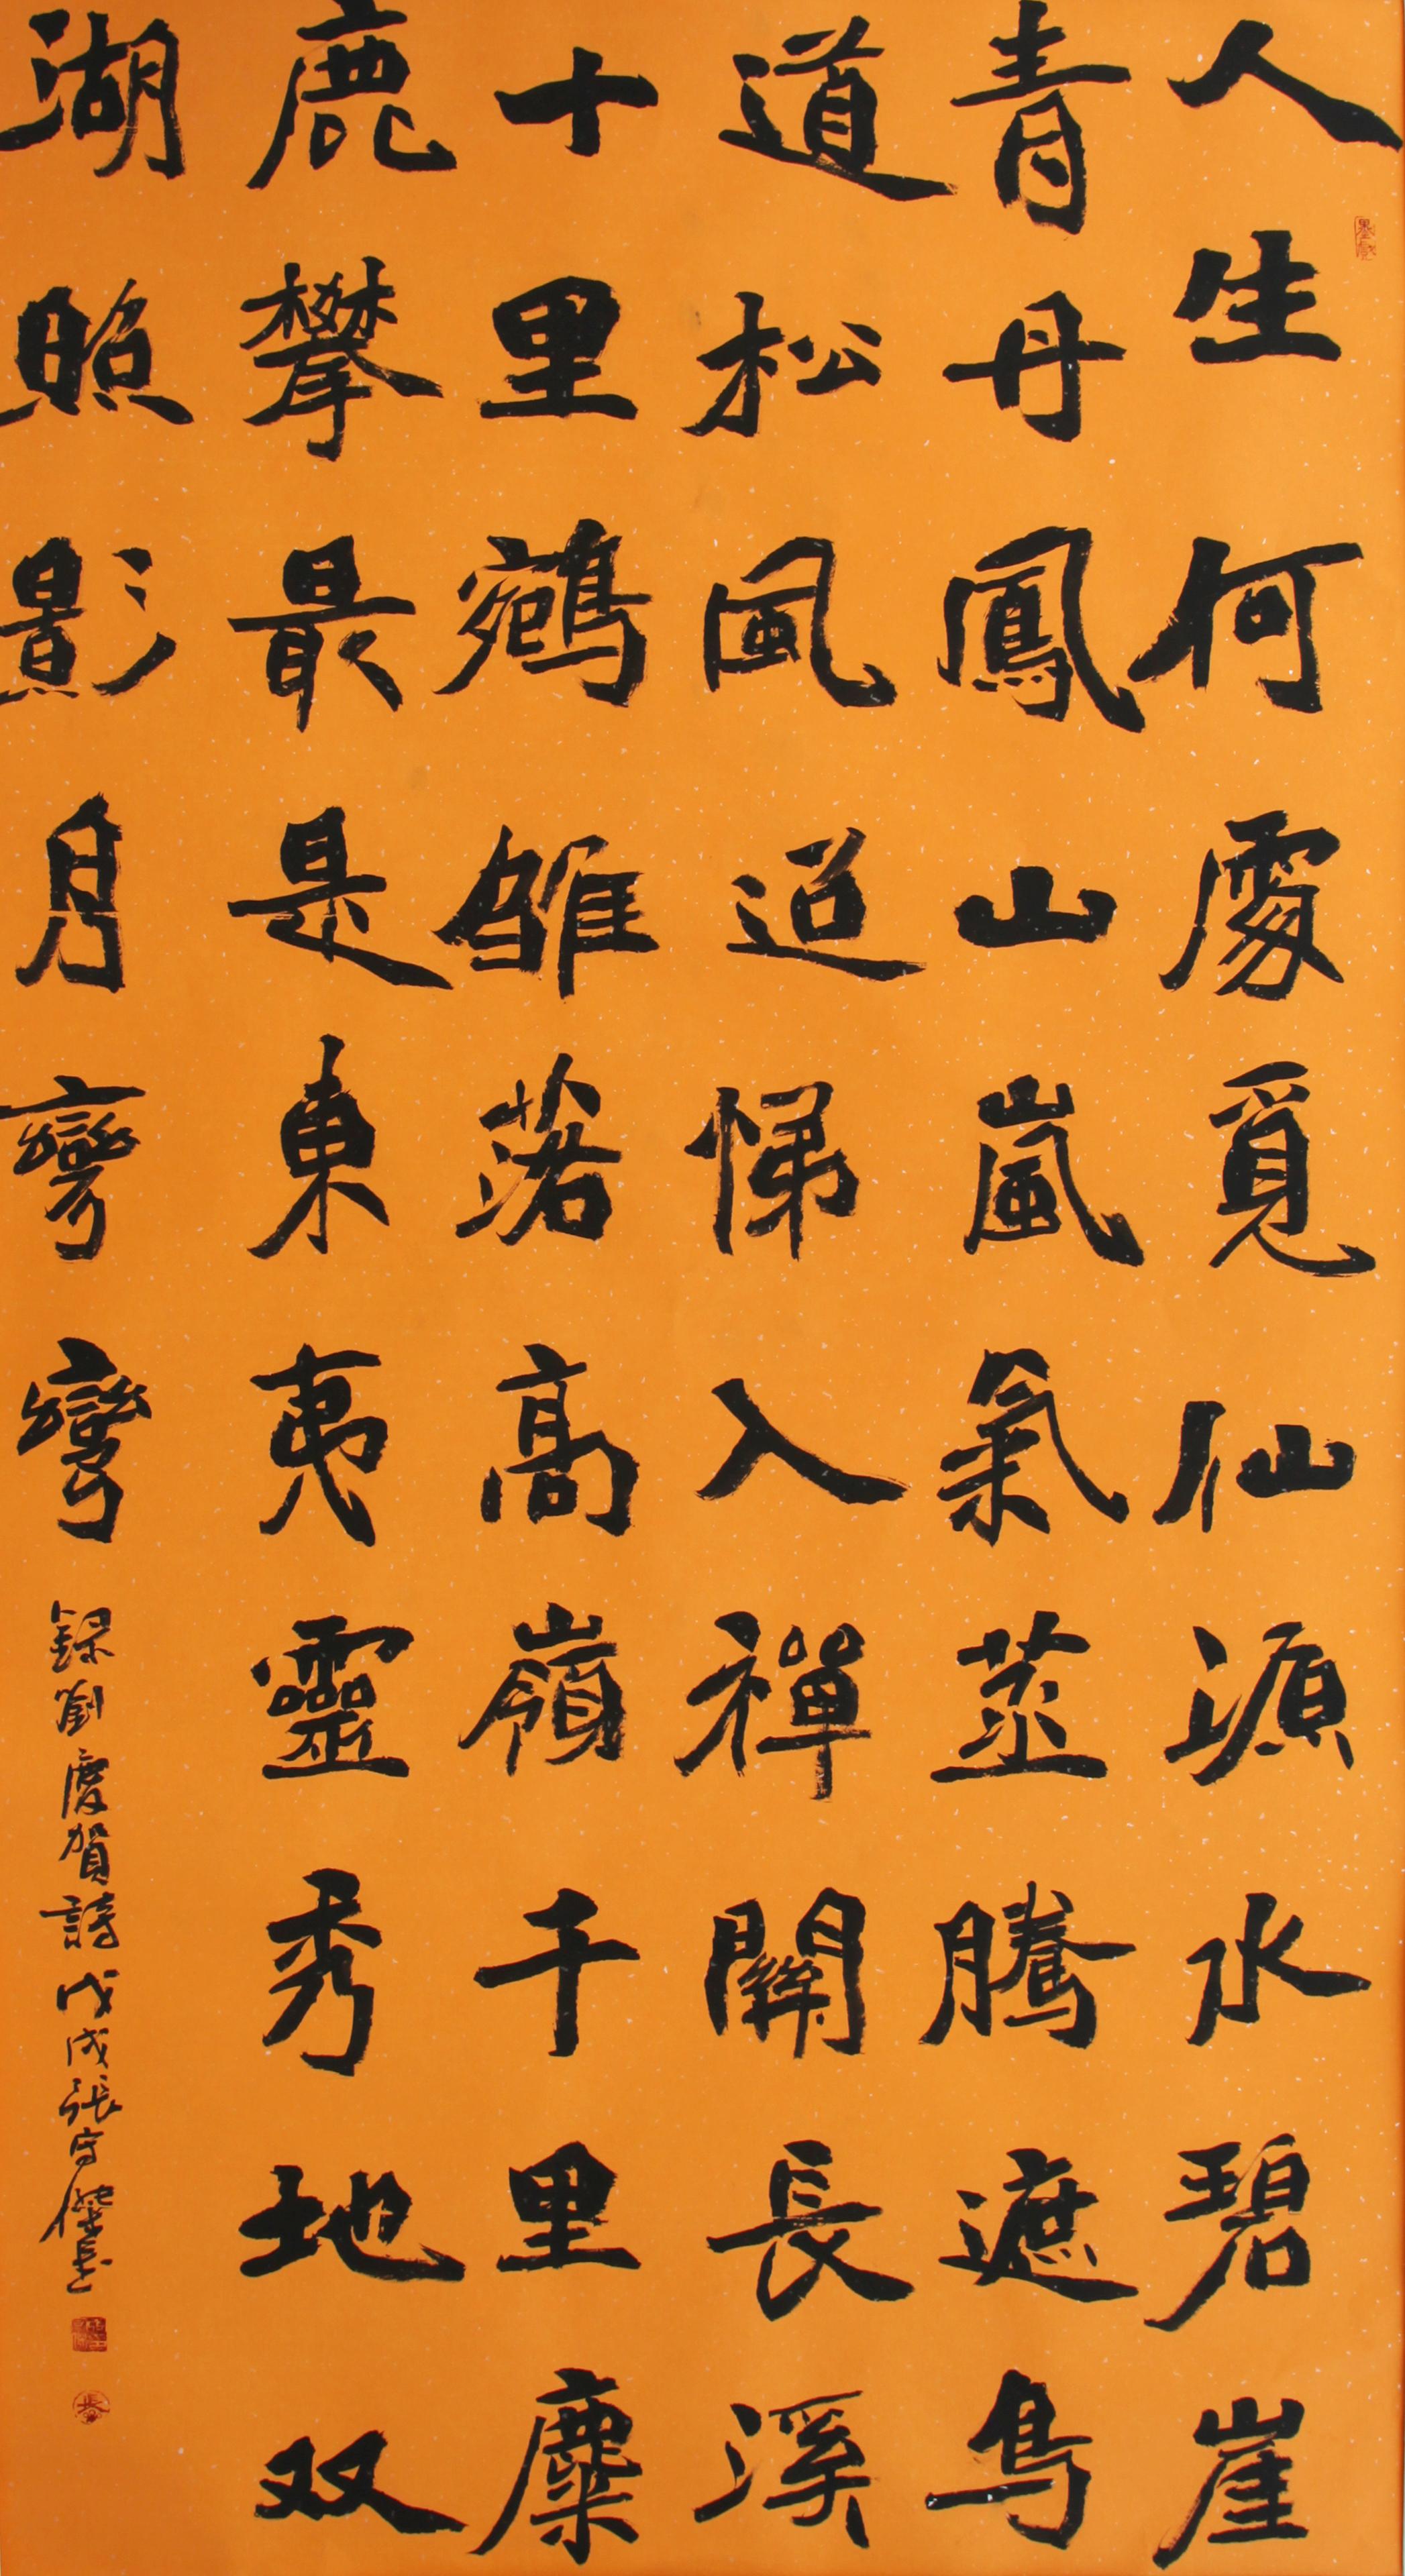 人生何處覓仙源水碧崖
青丹鳳山嵐氣蒸騰遮鳥
道松風迢悌入禪關長溪
十里鵷雛落高嶺千里麋
鹿攀最是東夷靈秀地双
湖照影月彎彎
錄劉慶賀詩戊戌張守傑書